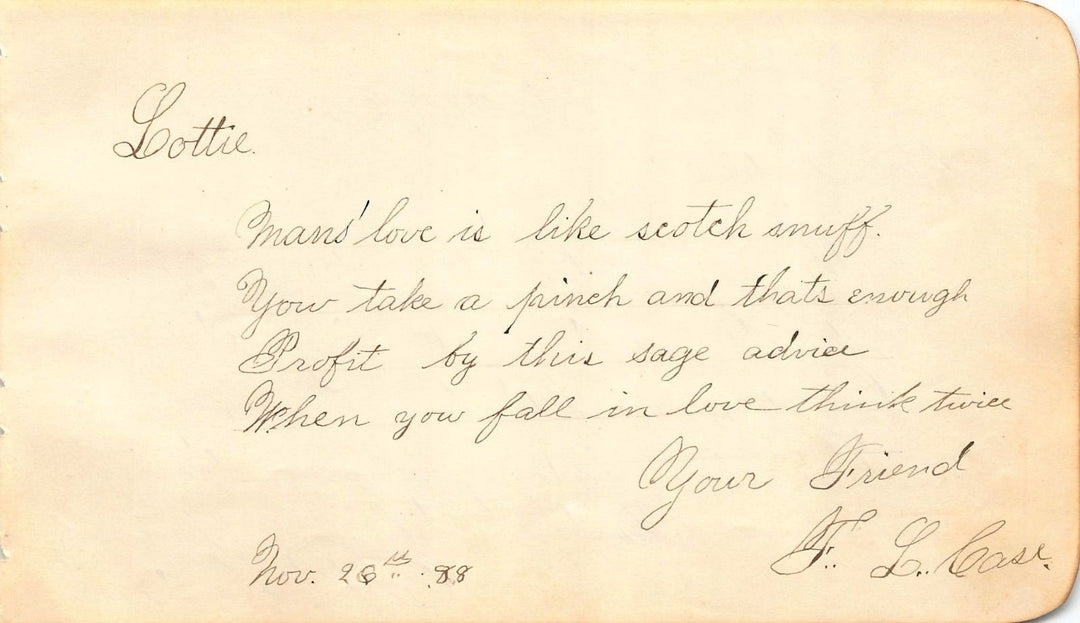 Lottie.
Mans' love is like scotch snuff.
You take a pinch and thats enough
Profit by this sage advice
When you fall in love think twice
Your Friend
F. L. Case.
Nov. 26th. 88